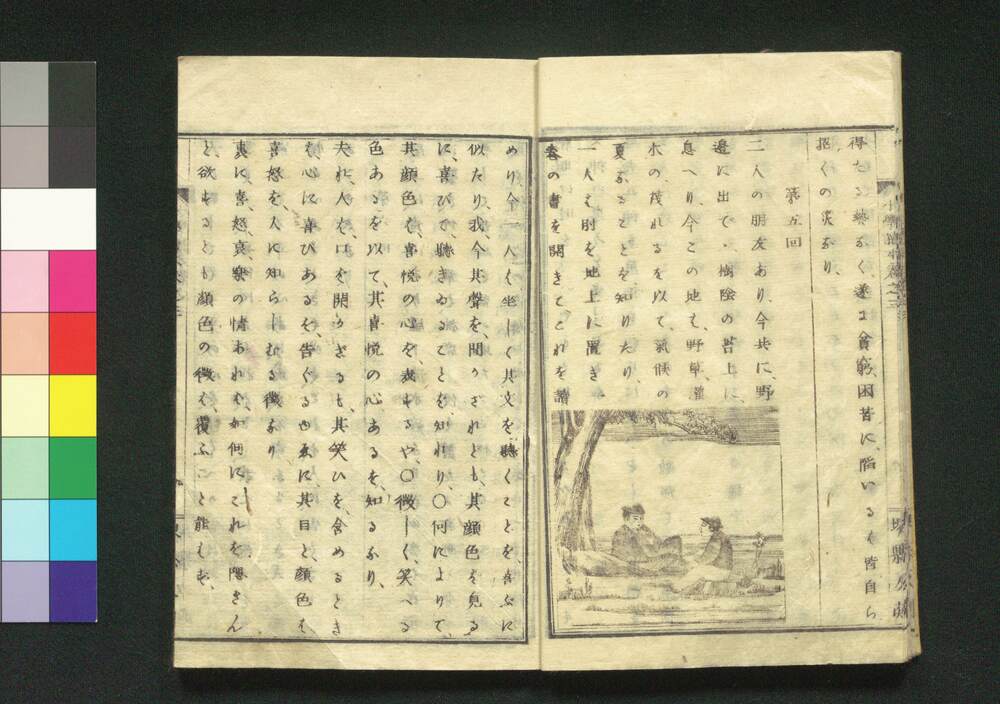 得たる藝なく、遂に貧窮困苦に、陥いるも皆自ら
招くの災なり、
第五回
二人の朋友あり今共に、野
邊に出で、樹陰の苔上に、
息へり今この地も、野草灌
木の茂れるを以て、氣候の
夏なることを知りたり、
一人も肘を地上に置き一
巻の書を開きてこれを讀
めり今一人も坐して其文を聴くことを、喜ぶに
似たり、我今其聲を、聞かざれども、其顔色を見る
に、喜びて、聴き居ることを、知れり、〇何によりて、
其顔色も、喜悦の心を表するや〇微しく、笑へる
色あるを以て、其喜悦の心あるを、知るなり、
夫れ人も、口を開かざるも、其笑ひを、含めるとき
も、心に喜びあるを、告ぐる也故に、其目と顔色も
喜怒を、人に知らしむる徴なり
裏に喜怒哀樂の情あれも、如何にこれを隠さん
と、欲するとも顔色の徴も、覆ふこと能もず、